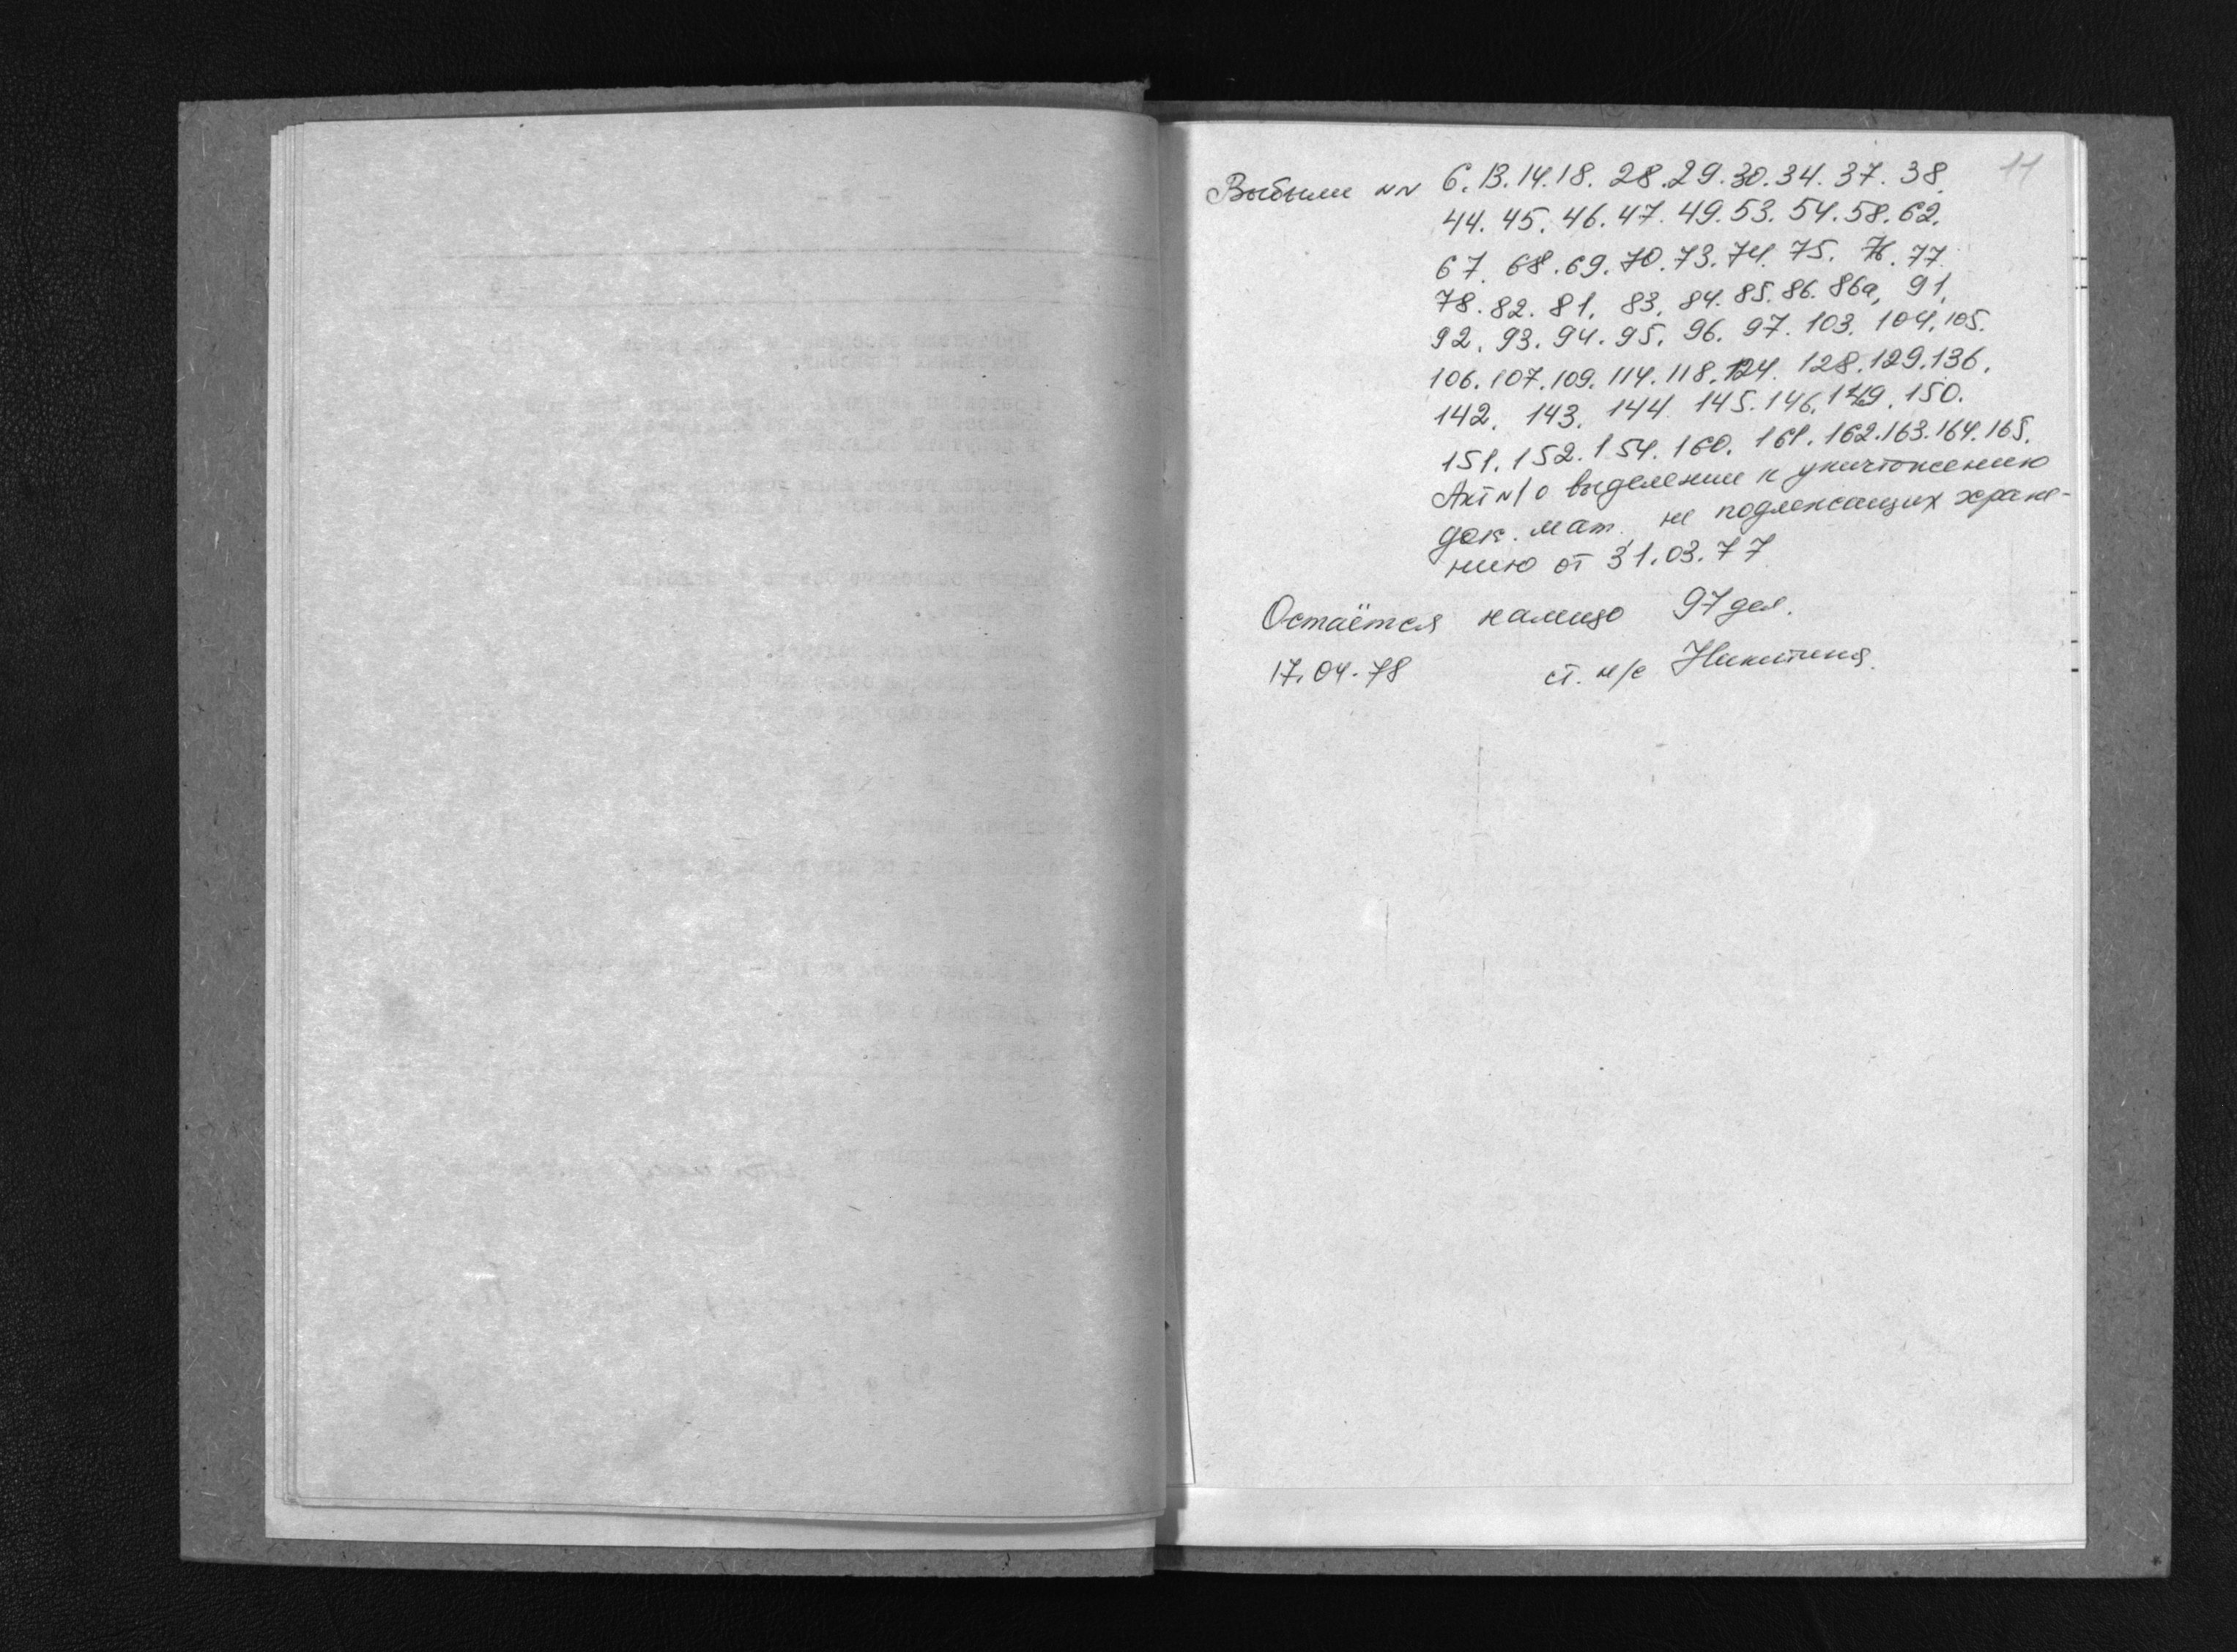 11
Выбыли NN 6. 13. 14. 18. 28. 29. 30. 34. 37. 38.
44. 45. 46. 47. 49. 53. 54. 58. 62.
67. 68. 69. 70. 73. 74. 75. 76. 77.
78. 82. 81. 83. 84. 85. 86. 86а, 91.
92. 93. 94. 95. 96. 97. 103. 104. 105.
106. 107. 109. 114. 118. 124. 128. 129. 136.
142. 143. 144. 145. 146. 149. 150.
151. 152. 154. 160. 161. 162. 163. 164. 165.
Акт N 1 о выделении к уничтожению
док. мат. не подлежащих хране-
нию от 31.03.77
Остаётся налицо 97 дел.
17.04.78 ст. н/с Никитина.